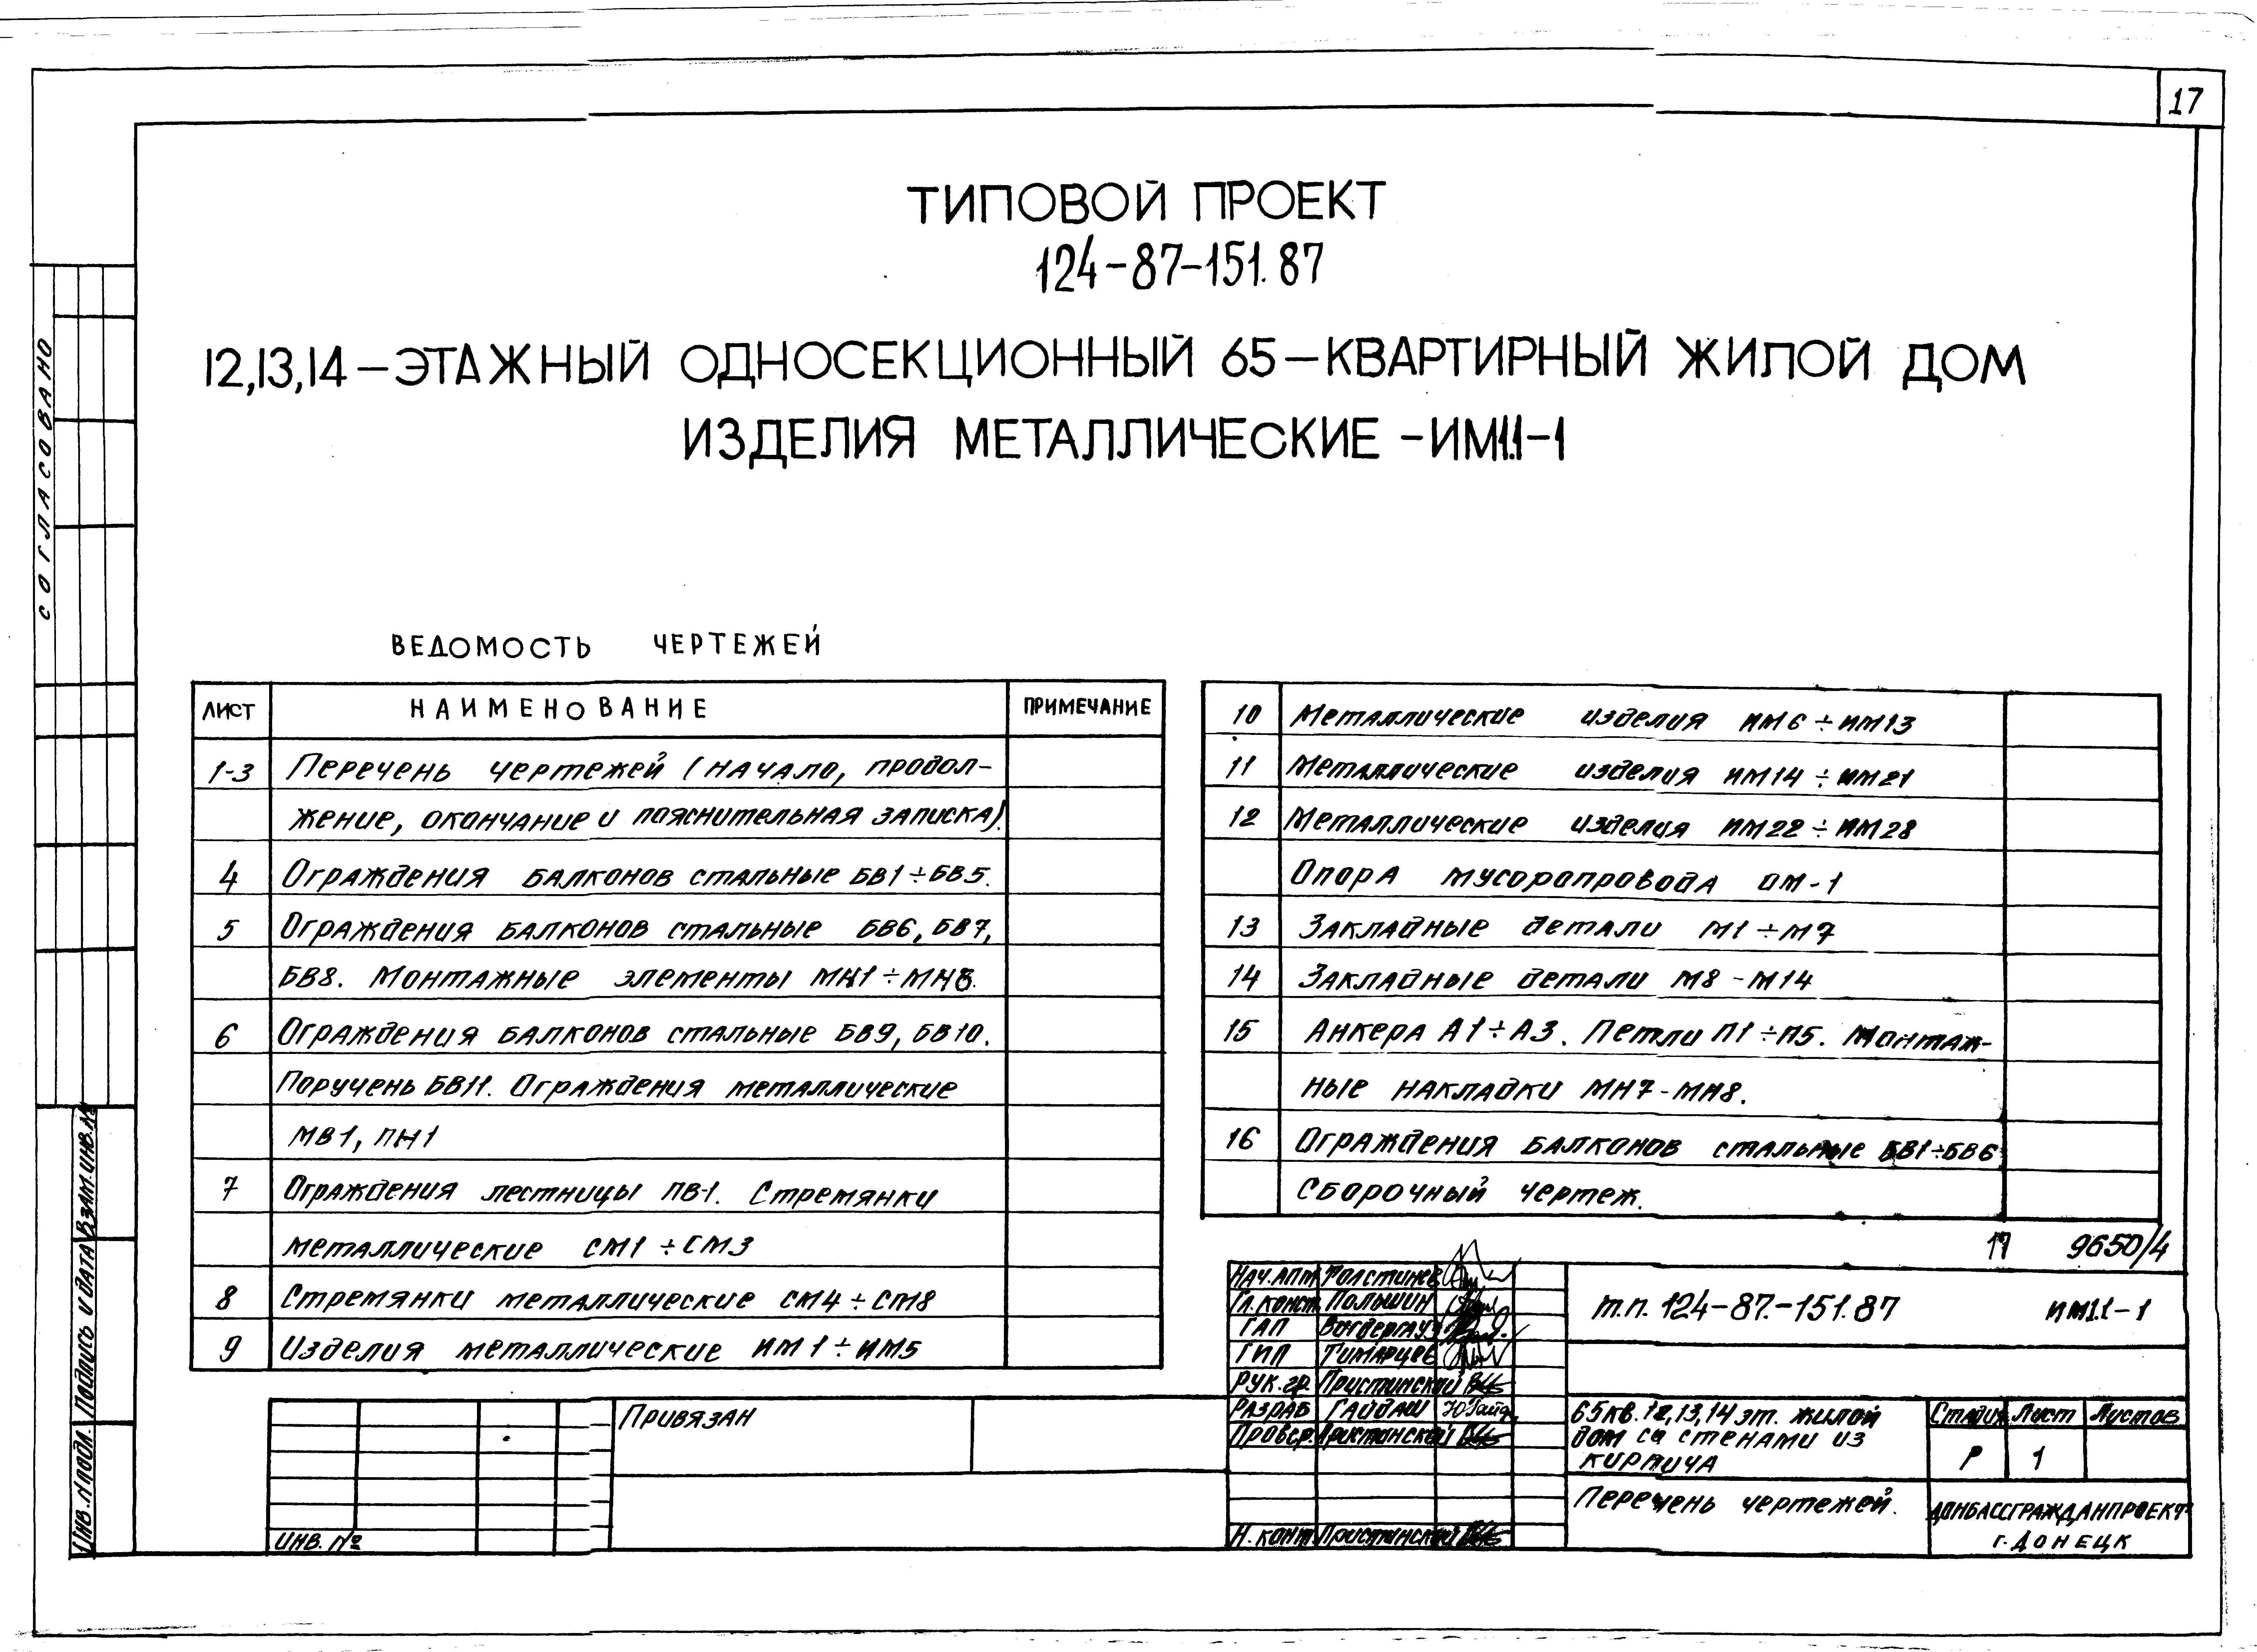 17
ТИПОВОЙ ПРОЕКТ
124-87-151.87
12,13,14-ЭТАЖНЫЙ ОДНОСЕКЦИОННЫЙ 65-КВАРТИРНЫЙ ЖИЛОЙ ДОМ
ИЗДЕЛИЯ МЕТАЛЛИЧЕСКИЕ -ИМ1.1-1
СОГЛАСОВАНО
ВЕДОМОСТЬ ЧЕРТЕЖЕЙ
ЛИСТ НАИМЕНОВАНИЕ ПРИМЕЧАНИЕ
1-3 Перечень чертежей (начало, продол-
жение, окончание и пояснительная записка).
4 Ограждения балконов стальные БВ1÷БВ5.
5 Ограждения балконов стальные БВ6, БВ7,
БВ8. Монтажные элементы МН1÷МН6.
6 Ограждения балконов стальные БВ9, БВ10.
Поручень БВ11. Ограждения металлические
МВ1, ПН1
7 Ограждения лестницы ПВ-1. Стремянки
металлические СМ1÷СМ3
8 Стремянки металлические СМ4÷СМ8
9 Изделия металлические ИМ1÷ИМ5
10 Металлические изделия ИМ6÷ИМ13
11 Металлические изделия ИМ14÷ИМ21
12 Металлические изделия ИМ22÷ИМ28
Опора мусоропровода ОМ-1
13 Закладные детали М1÷М7
14 Закладные детали М8-М14
15 Анкера А1÷А3. Петли П1÷П5. Монтаж-
ные накладки МН7-МН8.
16 Ограждения балконов стальные БВ1÷БВ6
Сборочный чертеж.
17 9650/4
Нач.АПМ
Гл.конст. Польшин
ГАП
ГИП Тимарцев
Рук.гр. Пристинский
Разраб Гайдаш
Провер. Пристинский
Н.конт. Пристинский
т.п. 124-87-151.87 ИМ1.1-1
65кв. 12,13,14 эт. жилой
дом со стенами из
кирпича
Стадия Лист Листов
Р 1
Перечень чертежей.
ДОНБАССГРАЖДАНПРОЕКТ
г. ДОНЕЦК
Привязан
ИНВ. №
Инв.№подл. Подпись и дата Взам.инв.№